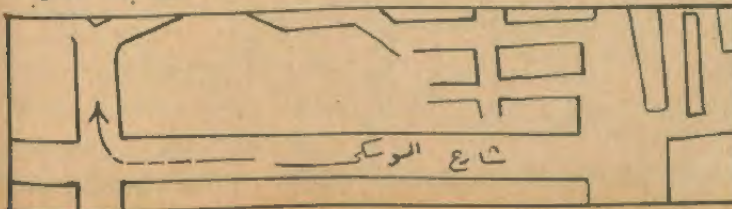 شارع الموسكى